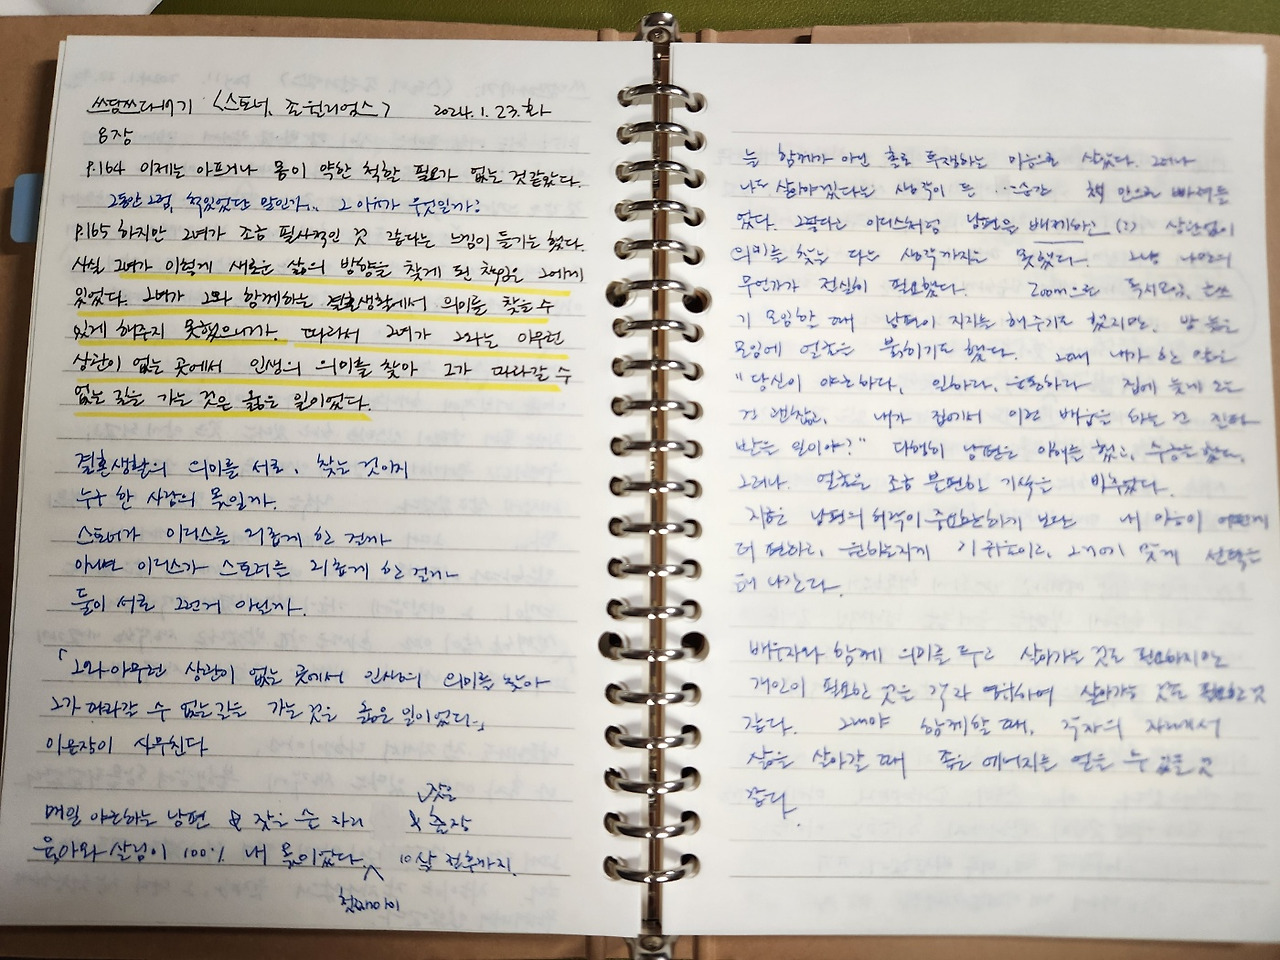 쓰담쓰다바기 <스토너, 존 윌리엄스> 2024. 1. 23. 화
8장
P.164 이제는 아프거나 몸이 약한 척할 필요가 없는 것같았다.
그동안 그럼, 척있었단 말인가.. 그 이유가 무엇일까?
P.165 하지만 그녀가 조금 필사적인 것 같다는 느낌이 들기는 했다.
사실 그녀가 이렇게 새로운 삶의 방향을 찾게 된 책임은 그에게
있었다. 그녀가 그와 함께하는 결혼생활에서 의미를 찾을 수
있게 해주지 못했으니까. 따라서 그녀가 그와는 아무런
상관이 없는 곳에서 인생의 의미를 찾아 그가 따라갈 수
없는 길을 가는 것은 옳은 일이었다.
결혼생활의 의미를 서로, 찾는 것이지
누구 한 사람의 몫일까.
스토너가 이디스를 외롭게 한 걸까
아니면 이디스가 스토너를 외롭게 한 걸까
둘이 서로 그런거 아닌가.
「그와 아무런 상관이 없는 곳에서 인생의 의미를 찾아
그가 따라갈 수 없는 길을 가는 것은 옳은 일이었다.」
이 문장이 사무친다
잦은
매일 야근하는 남편 & 잦은 술 자리 & 출장
육아와 살림이 100% 내 몫이었다. 10살 전후까지.
첫째아이
는 함께가 아닌 홀로 투쟁하는 마음으로 살았다. 그러나
나도 살아야겠다는 생각이 든 순간 책 안으로 빠져들
었다. 그렇다고 이디스처럼 남편을 배제하고 (?) 상관없이
의미를 찾는 다는 생각까지는 못했다. 그냥 나만의
무언가가 절실히 필요했다. Zoom으로 독서모임, 글쓰
기 모임할 때 남편이 지지를 해주기도 했지만, 밤 늦은
모임에 얼굴을 붉히기도 했다. 그때 내가 한 말은
"당신이 야근하다, 일하다, 운동하다 집에 늦게 오는
건 괜찮고, 내가 집에서 이런 배움을 하는 건 질타
받을 일이야?" 다행히 남편은 이해를 했고, 수긍을 했다.
그러나. 얼굴은 조금 불편한 기색을 비추었다.
지금은 남편의 허락이 중요하기 보다는 내 마음이 어떤게
더 편하고, 을 기준으로, 그거에 맞게 선택을
해 나간다.
배우자와 함께 의미를 두고 살아가는 것도 필요하지만
개인이 필요한 것은 각자 하며 살아가는 것도 필요한 것
같다. 그래야 함께할 때, 각자의 자리에서
삶을 살아갈 때 좋은 에너지를 얻을 수 있을 것
같다.